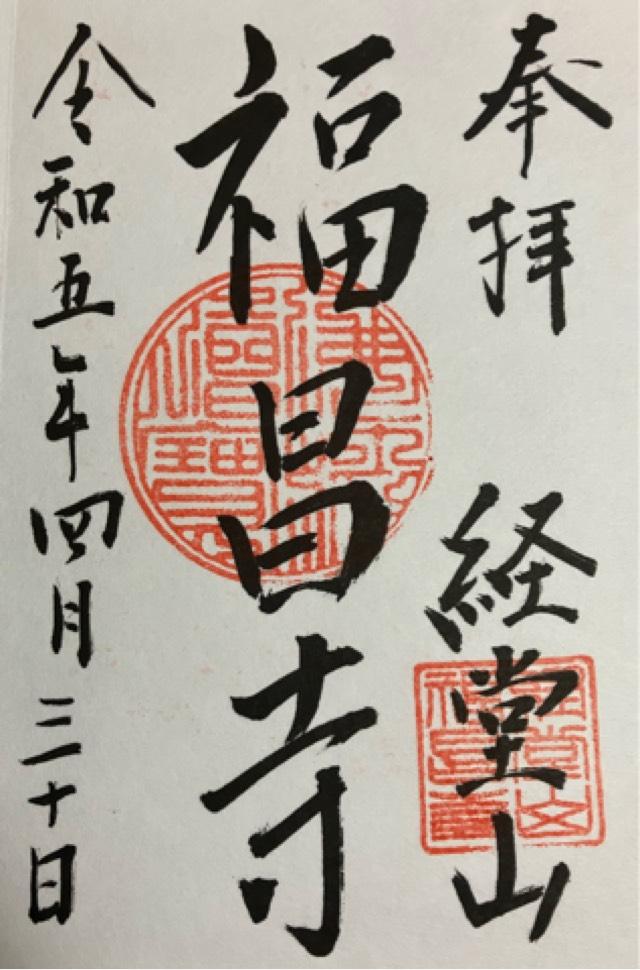 奉拝
経堂山
福昌寺
令和五年四月三十日
佛法僧寶